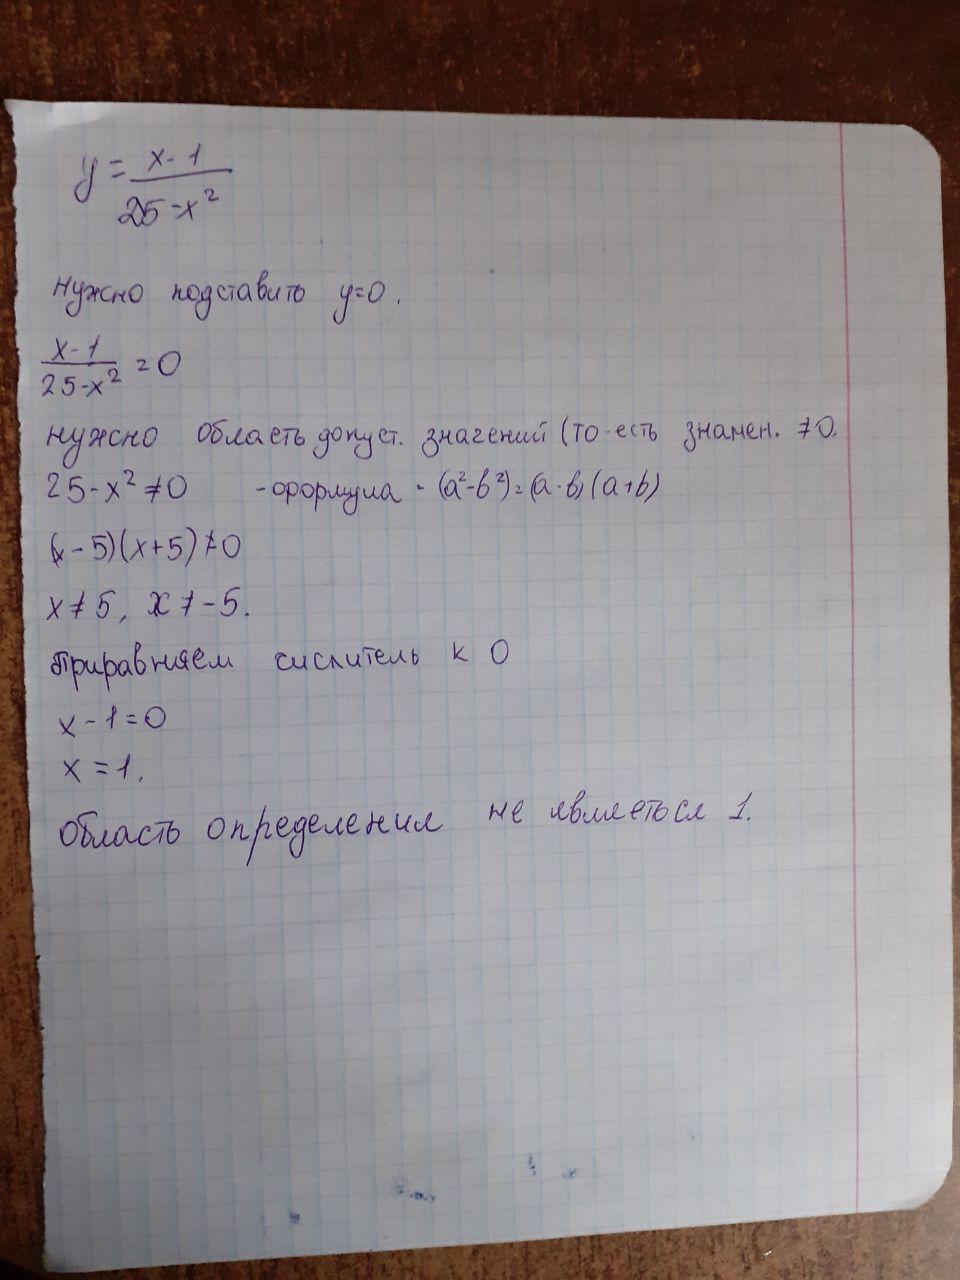 y = x-1 / 25-x²
нужно подставить y=0.
x-1 / 25-x² = 0
нужно область допуст. значений (то-есть знамен. ≠0.
25-x²≠0 -формула - (a²-b²)=(a-b)(a+b)
(x-5)(x+5)≠0
x≠5, x≠-5.
Приравняем сислитель к 0
x-1=0
x=1.
Область определения не являеться 1.